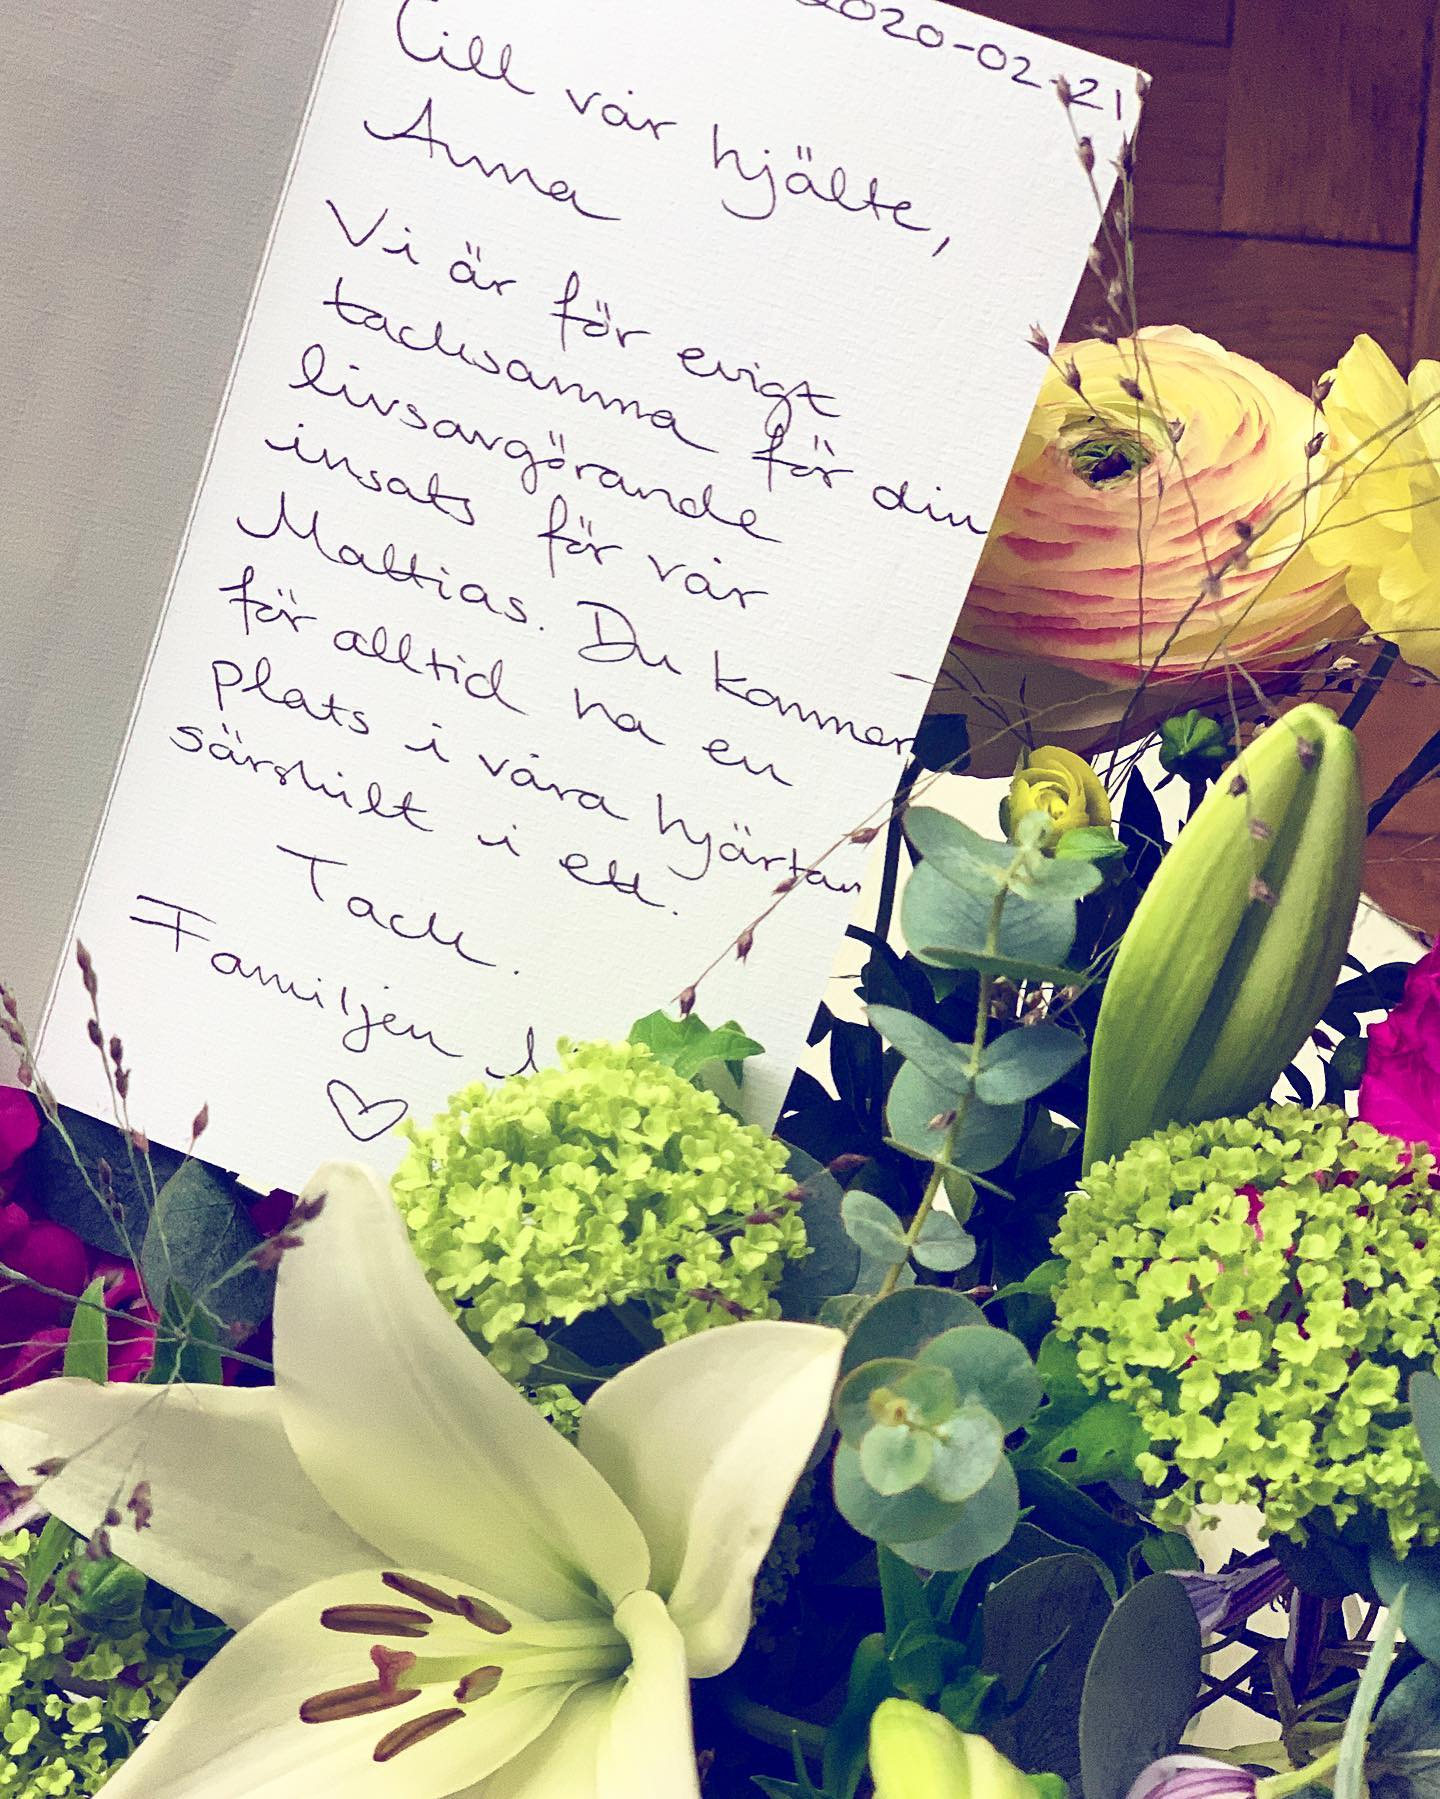 2020-02-21
Till vår hjälte,
Anna
Vi är för evigt
tacksamma för din
livsavgörande
insats för vår
Mattias. Du kommer
för alltid ha en
plats i våra hjärtan
särskilt i ett.
Tack.
Familjen